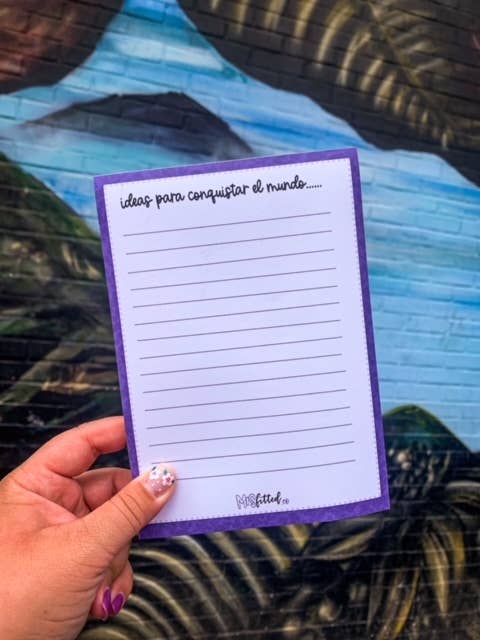 ideas para conquistar el mundo......
Misfitted